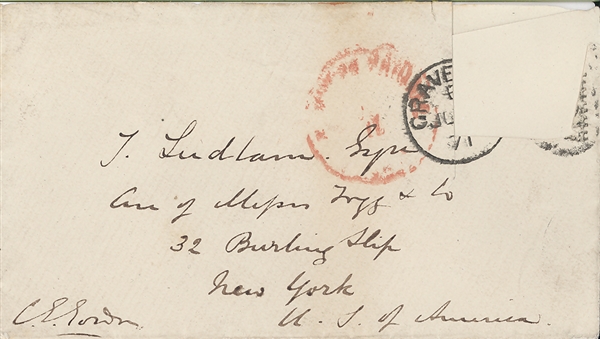 PAID
GRAVE
JU
71
T. Ludlam Esqre
Care of Messrs Fogg & Co
32 Burling Slip
New York
U. S. of America.
C. E. Gordon